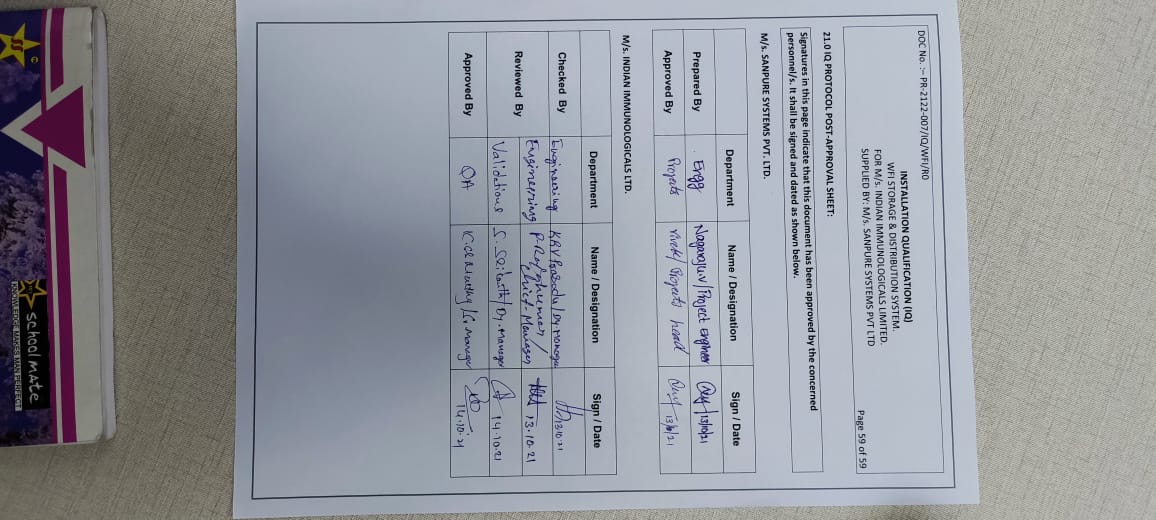 DOC No. :- PR-2122-007/IQ/WFI/R0
INSTALLATION QUALIFICATION (IQ)
WFI STORAGE & DISTRIBUTION SYSTEM.
FOR M/s. INDIAN IMMUNOLOGICALS LIMITED.
SUPPLIED BY: M/s. SANPURE SYSTEMS PVT LTD
Page 59 of 59
21.0 IQ PROTOCOL POST-APPROVAL SHEET:
Signatures in this page indicate that this document has been approved by the concerned
personnel/s. It shall be signed and dated as shown below.
M/s. SANPURE SYSTEMS PVT. LTD.
Department Name / Designation Sign / Date
Prepared By Engg Nagaraju.v/Project engineer 13/10/21
Approved By Projects Vivek/ Projects head
M/s. INDIAN IMMUNOLOGICALS LTD.
Department Name / Designation Sign / Date
Checked By Engineering KBV /Dy. Manager 13.10.21
Engineering Manager 13.10.21
Reviewed By Validations S. /Dy. Manager 14.10.21
Approved By QA Manager 14.10.21
schoolmate
KNOWLEDGE MAKES MAN PERFECT